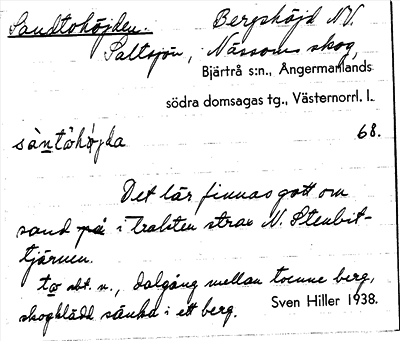 Sandtohöjden.
Bergshöjd NV.
Saltsjön, Nässoms skog,
Bjärtrå s:n., Ångermanlands
södra domsagas tg., Västernorrl. l.
sàntòhö̀jda 68.
Det lär finnas gott om
sand på i trakten strax N. Stenbit-
tjärnen.
to sbt. n., dalgång mellan tvenne berg,
skogklädd sänka i ett berg.
Sven Hiller 1938.